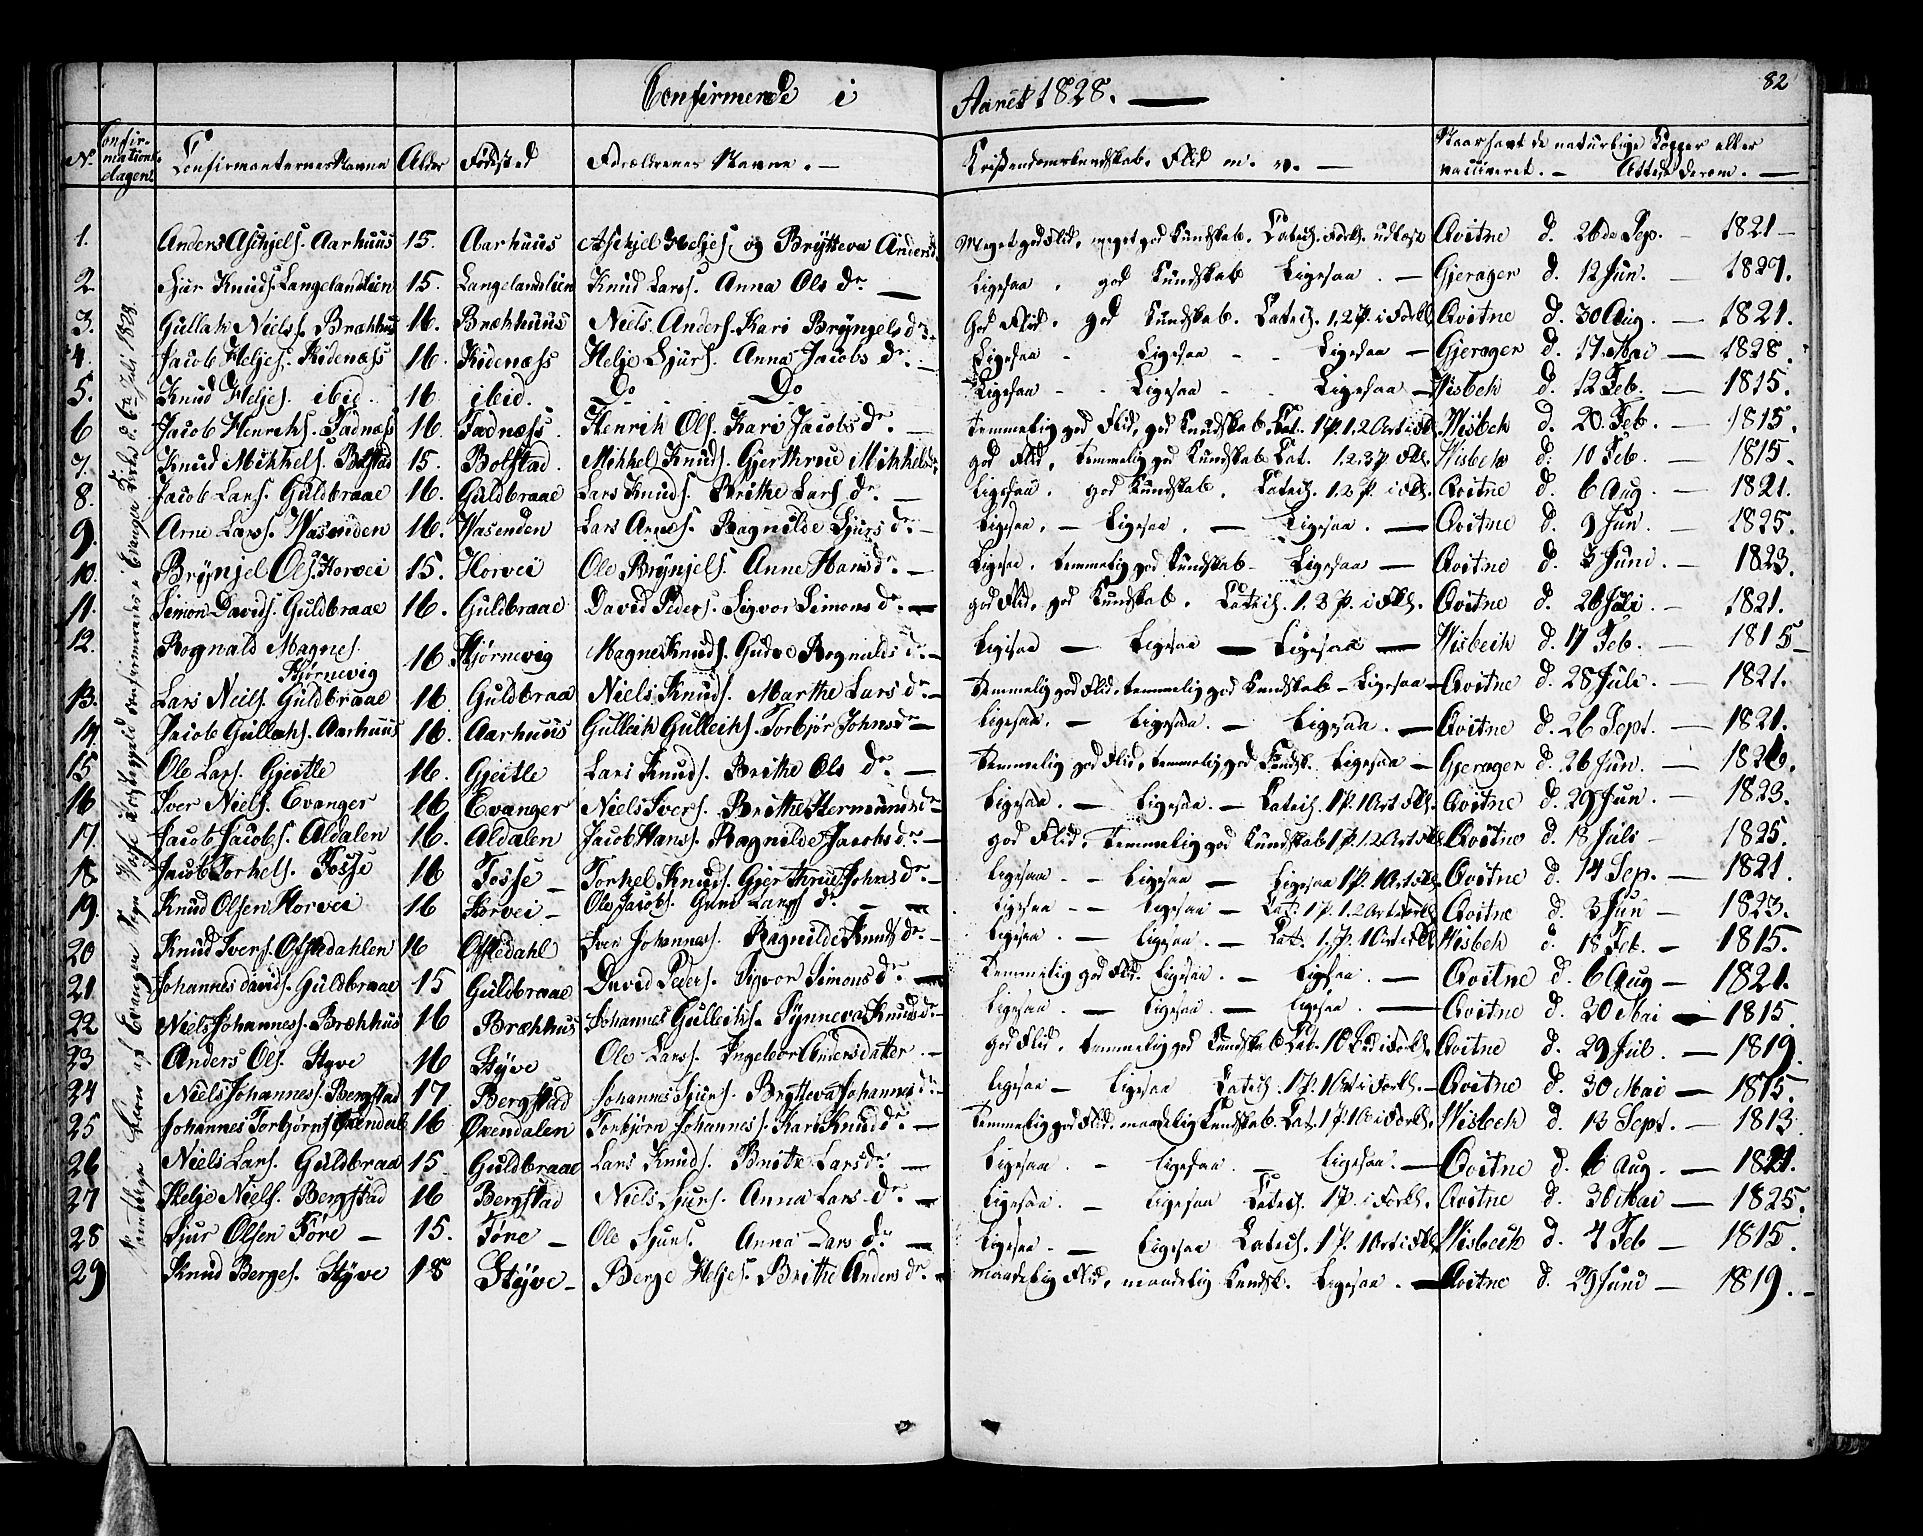 Confirmerede i Aaret 1828. 82
No Confirmationsdagen Confirmanternes Navne Alder Fødested Forældrenes Navne. Kristendomskundskab, Flid m. v. Naar havt de naturlige Kopper eller vaccineret. Attest derom.
Samtlige Børn af Evanger Sogn Vosse Præstegjeld confirmerede i Evanger Kirke d. 6te Juli 1828
1. Anders Aschjels. Aarhuus 15. Aarhuus Aschjel Heljes. og Brytteva Andersd. Meget god Flid, meget god Kundskab. Catech. i Forkl. udlæst Qvitne d. 26de Sep. 1821
2. Sjur Knuds. Langelandslien 15. Langelandslien Knud Lars. Anna Ols dr. Ligesaa, god Kundskab Ligesaa. Gjerager d. 12 Jun. 1827.
3. Gullak Niels. Brækhus 16. Brækhuus Niels Anders. Kari Bryngels dr. God Flid, god Kundskab. Catech. 1.2 P. i Forkl. Qvitne d. 30 Aug. 1821.
4. Jacob Heljes. Kidenæss 16. Kidenæss Helje Sjurs. Anna Jacobs dr. Ligesaa Ligesaa Ligesaa Gjerager d. 17 Mai 1828.
5. Knud Heljes. ibid. 16 ibid. Do Do Ligesaa Ligesaa Ligesaa Wisbek d. 12 Feb. 1815.
6 Jacob Henriks. Fadnæss 16. Fadnæss. Henrik Ols. Kari Jacobs dr. temmelig god Flid, god Kundskab. Cat. 1 P. 1.2 Art i Fkl. Wisbek d. 20 Feb. 1815.
7. Knud Mikkels. Bolstad 15. Bolstad. Mikkel Knuds. Gjerthrue Mikkelsdr. god Flid, temmelig god Kundskab Cat. 1.2.3 P Fkl. Wisbek d. 10 Feb. 1815.
8. Jacob Lars. Guldbraae 16. Guldbraae Lars Knuds. Brithe Lars dr. Ligesaa, god Kundskab. Catech. 1.2 P. i Fkl. Qvitne d. 6 Aug. 1821.
9. Arne Lars. Wasenden 16. Wasenden Lars Arnes. Ragnilde Sjurs dr. Ligesaa. Ligesaa. Ligesaa. Qvitne d. 9 Jun. 1825.
10. Brynjel Ols. Horvei 15. Horvei Ole Brynjels. Anne Hans dr. Ligesaa, temmelig god Kundskab Ligesaa Qvitne d. 3 Juni 1823.
11. Simon Davids. Guldbraae 16. Guldbraae David Peders. Sigvor Simons dr. god Flid, god Kundskab. Catech. 1.2 P. i Fkl. Qvitne d. 26 Juli 1821.
12. Rognald Magnes. 16. Skjørnevig Magne Knuds. Gudve Rognalds dr. Ligesaa Ligesaa Ligesaa Wisbeck d. 17 Feb. 1815
Skjørnevig
13. Lars Neils. Guldbraae 16. Guldbraa Niels Knuds. Marthe Lars dr. temmelig god Flid, temmelig god Kundskab Ligesaa Qvitne d. 28 Juli. 1821.
14 Jacob Gullaks. Aarhuus 16. Aarhuus Gulleik Gulleiks. Torbjør Johnsdr. Ligesaa. Ligesaa. Ligesaa. Qvitne d. 26 Sept. 1821.
15 Ole Lars. Gjeitle 16. Gjeitle Lars Knuds. Brithe Ols dr. temmelig god Flid, temmelig god Kundsk. Ligesaa Gjerager d. 26 Jun.
16 Iver Niels. Evanger 16 Evanger Niels Ivers. Brithe Hermundsdr. Ligesaa. Ligesaa. Catech. 1 P. 1 Art i Fkl. Qvitne d. 29 Jun. 1823.
17. Jacob Jacobs. Aldalen 16. Aldalen Jacob Hans. Ragnilde Jacobs dr. god Flid, temmelig god Kundskab 1 P. 1.2 Art i Fkl Qvitne d. 18 Juli 1825.
18. Jacob Torkels. Fosse 16 Fosse Torkel Knuds. Gjerthrue Johns dr. Ligesaa Ligesaa Ligesaa 1 P. 1 Art i Fkl. Qvitne d. 14 Sep. 1821.
19. Knud Olsen Horvei 16 Horvei Ole Jacobs. Guro Lars dr. Ligesaa Ligesaa Cat. 1 P. 1.2 Art i Forkl. Qvitne d. 3 Jun 1823.
20 Knud Ivers. Ofstedahlen 16 Ofstedahl Iver Johannes. Ragnilde Knuds dr. Ligesaa. Ligesaa. Cat. 1. P. 1 Art i Fkl Wisbek d. 18 Feb. 1815.
21. Johannes Davids. Guldbraae 15 Guldbraae David Peders. Sigvor Simons dr. temmelig god Flid. Ligesaa. Ligesaa. Qvitne d. 6 Aug 1821.
22 Niels Johannes. Brækhus 16 Brækhus Johannes Gulleiks. Synneva Knudsdr. Ligesaa. Ligesaa. Ligesaa Qvitne d. 20 Mai 1815.
23 Anders Ols. Styve 16 Styve Ole Lars. Ingebor Andersdatter. god Flid, temmelig god Kundskab Cat. 10 Bud i Forkl. Qvitne d. 29 Jul. 1819.
24 Niels Johannes. Bergstad 17. Bergstad Johannes Sjurs. Brytteva Johannes dr. Ligesaa Ligesaa Catech. 1 P. 1 Art i Forkl. Qvitne d. 30 Mai 1815.
25 Johannes Torbjørns Øxendal 16 Øxendalen Torbjørn Johannes. Kari Knud dr. temmelig god Flid, maadelig Kundskab. Cat. 1 P. i Forkl. Wisbek d. 13 Sept. 1813.
26 Niels Lars. Guldbraa 15 Guldbraae Lars Knuds. Brithe Lars dr. Ligesaa. Ligesaa. Ligesaa. Qvitne d. 6 Aug. 1821.
27 Helje Niels. Bergstad 16 Bergstad Niels Sjurs. Anna Lars dr. Ligesaa. Ligesaa Catech. 1 P. i Forkl. Qvitne d. 30 Mai 1825.
28 Sjur Olsen Føre 15. Føre Ole Sjurs. Anna Lars dr. Ligesaa Ligesaa Catech. 1 P. 1 Art i Fkl. Wisbeck d. 4 Feb 1815.
29 Knud Berges. Styve 18 Styve Berge Heljes. Brithe Anders dr. maadelig Flid, maadelig Kundsk. Ligesaa. Qvitne d. 29 Juni 1819.